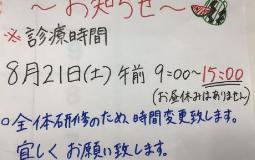 ～お知らせ～
※診療時間
8月21日(土)午前 9:00～15:00
(お昼休みはありません)
○全体研修のため、時間変更致します。
宜しくお願い致します。